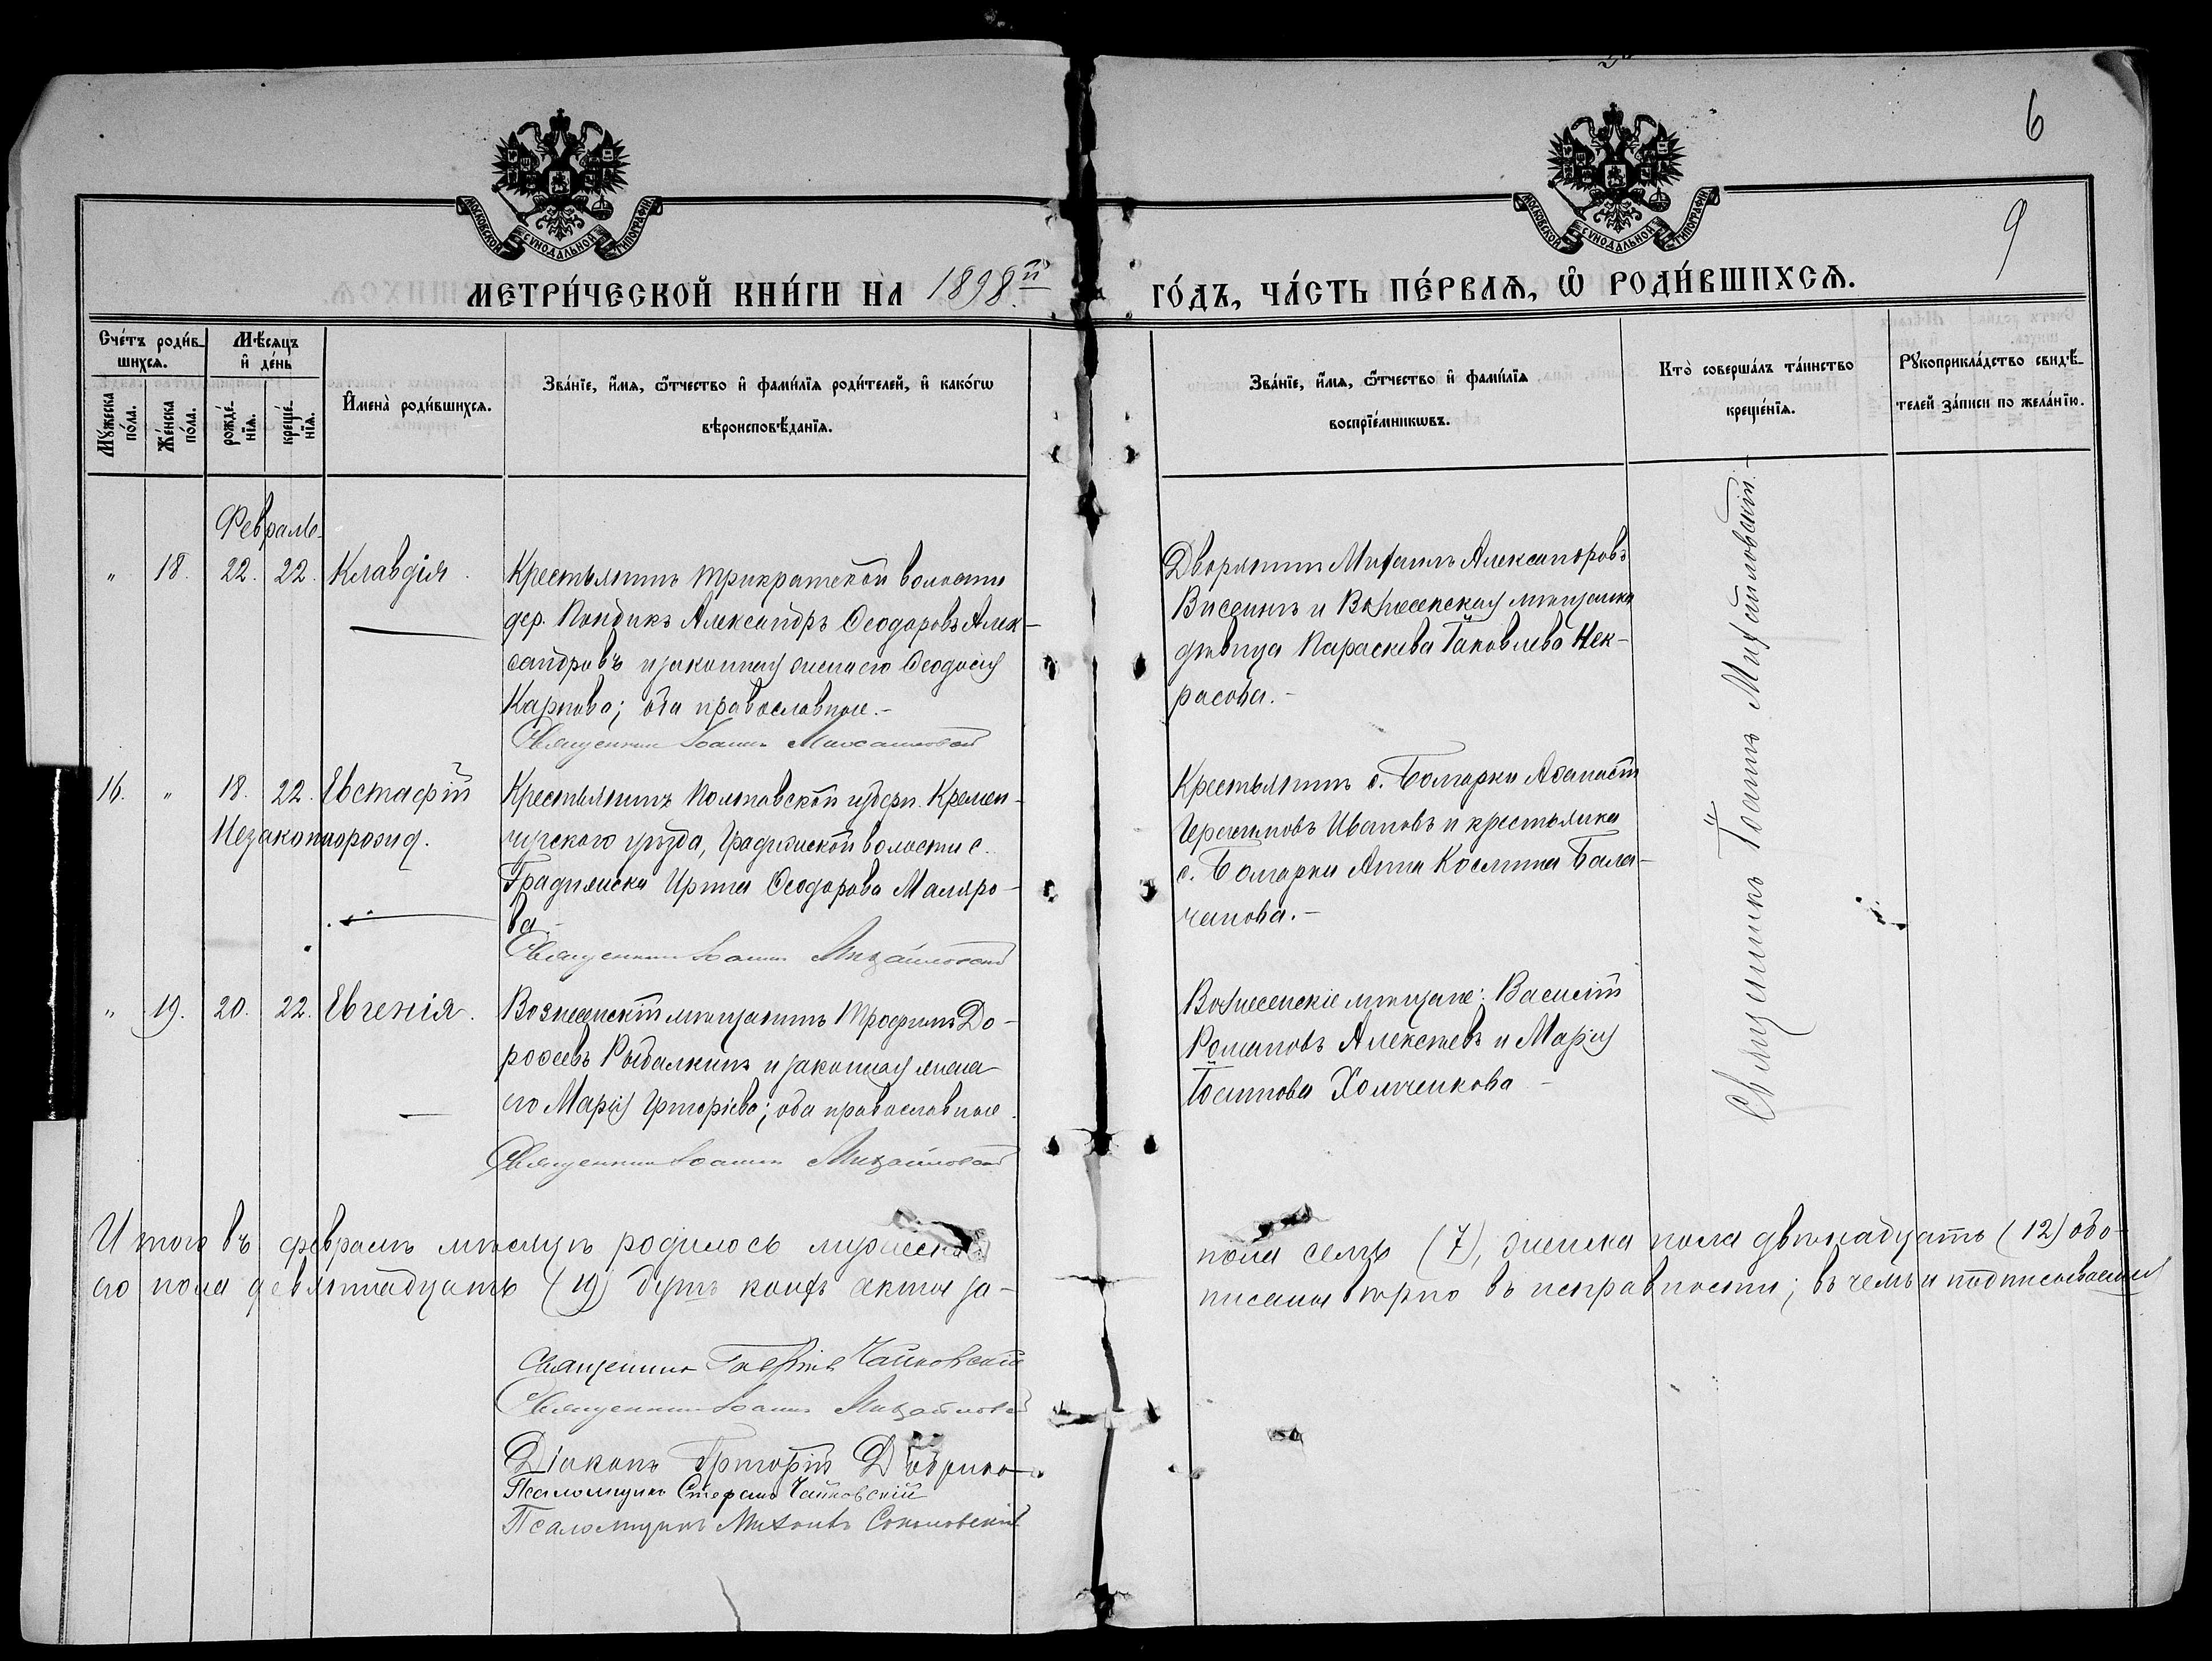 6
9
МОСКОВСКОЙ СѴНОДАЛЬНОЙ ТИПОГРАФІИ
МОСКОВСКОЙ СѴНОДАЛЬНОЙ ТИПОГРАФІИ
МЕТРИ́ЧЕСКОЙ КНИ́ГИ НА 1898й ГО́ДЪ, ЧА́СТЬ ПЕ́РВАѦ, Ѡ҆ РОДИ́ВШИХСѦ.
Сче́тъ роди́в-
шихсѧ.
Мꙋ́жеска по́ла.
Же́нска по́ла.
Мѣ́сяцъ
и҆ де́нь
рожде́-нїѧ.
креще́-нїѧ.
И҆мена̀ роди́вшихсѧ.
Зва́нїе, и҆́мѧ, ѻ҆́тчество и҆ фами́лїѧ роди́телей, и҆ како́гѡ
вѣроисповѣ́данїѧ.
Зва́нїе, и҆́мѧ, ѻ҆́тчество и҆ фами́лїѧ
воспрїе́мникѡвъ.
Кто̀ соверша́лъ та́инство
креще́нїѧ.
Рꙋкоприкла́дство свидѣ́-
телей за́писи по жела́нїю.
Февраль
" 18. 22. 22. Клавдія.
Крестьянинъ Трикратской волости
дер. Кандикъ Александръ Ѳеодоровъ Алек-
сандровъ и законная жена его Ѳеодосія
Карпова; оба православные.-
Священникъ Іоаннъ Михайловскій
Дворянинъ Михаилъ Александровъ
и Вознесенская мѣщанка
дѣвица Параскева Іаковлева Нек-
расова.-
16. " 18. 22. Евстафій
Незаконнорожд.
Крестьянинъ Полтавской губерн. Кремен-
чугского уѣзда, Градижской волости с.
Градижска Ирина Ѳеодорова Маляро-
ва.-
Священникъ Іоаннъ Михайловскій
Крестьянинъ с. Болгарки Аѳанасій
Ивановъ и крестьянка
с. Болгарки Анна Космина Бала-
чанова.-
" 19. 20. 22. Евгенія.
Вознесенскій мѣщанинъ Трофимъ До-
роѳеевъ Рыбалкинъ и законная жена
его Марія Григоріева; оба православные.
Священникъ Іоаннъ Михайловскій
Вознесенскіе мѣщане: Василій
Романовъ Алексѣевъ и Марія
Іосипова Холиченкова -
Священникъ Іоаннъ Михайловскій.-
Итого въ февралѣ мѣсяцѣ родилось мужеска пола семь (7), женска пола двѣнадцать (12) обо-
его пола девятнадцать (19) душъ коихъ акты за- писаны вѣрно въ исправности; въ чемъ и подписываемся
Священникъ Гавріилъ Чайковскій
Священникъ Іоаннъ Михайловскій
Діаконъ Григорій
Псаломщикъ Стефанъ Чайковскій
Псаломщикъ Михаилъ Соколовскій